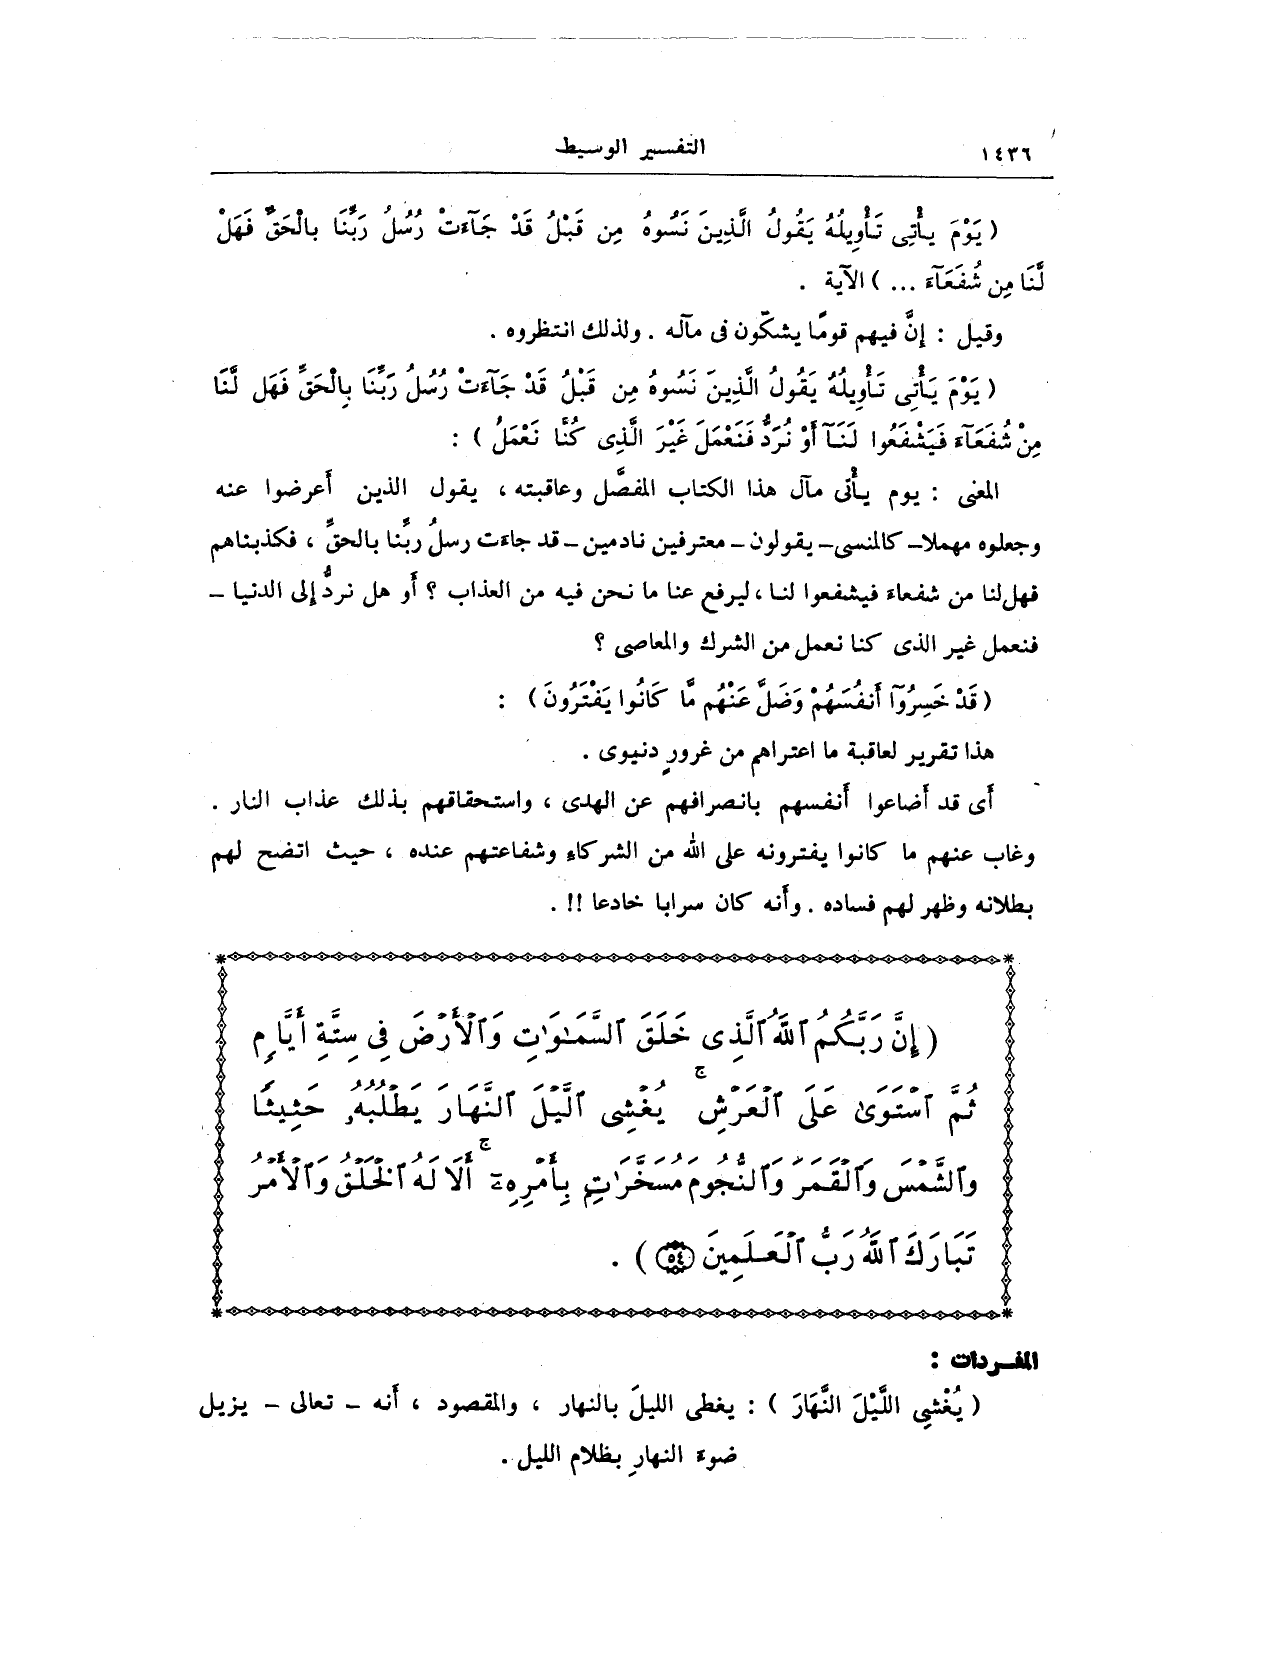 ١٤٣٦ التفسير الوسيط
( يَوْمَ يأْتِى تَأْوِيلُهُ يَقُولُ الَّذِينَ نَسُوهُ مِن قَبْلُ قَدْ جَآءَتْ رُسُلُ رَبِّنَا بالْحَقِّ فَهَلْ
لَّنَا مِن شُفَعَآءَ ... ) الآية .
وقيل : إنَّ فيهم قومًا يشكّون فى مآله . ولذلك انتظروه .
( يَوْمَ يَأْتِى تَأْوِيلُهُ يَقُولُ الَّذِينَ نَسُوهُ مِن قَبْلُ قَدْ جَآءَتْ رُسُلُ رَبِّنَا بِالْحَقِّ فَهَل لَّنَا
مِنْ شُفَعَآءَ فَيَشْفَعُوا لَنَآ أَوْ نُرَدُّ فَنَعْمَلَ غَيْرَ الَّذِى كُنَّا نَعْمَلُ ) :
المعنى : يوم يأْتى مآل هذا الكتاب المفصَّل وعاقبته ، يقول الذين أَعرضوا عنه
وجعلوه مهملا – كالمنسى – يقولون – معترفين نادمين – قد جاءَت رسلُ ربِّنا بالحقِّ ، فكذبناهم
فهل لنا من شفعاء فيشفعوا لنا ، ليرفع عنا ما نحن فيه من العذاب ؟ أَو هل نردُّ إلى الدنيا –
فنعمل غير الذى كنا نعمل من الشرك والمعاصى ؟
( قَدْ خَسِرُوٓا أَنفُسَهُمْ وَضَلَّ عَنْهُم مَّا كَانُوا يَفْتَرُونَ ) :
هذا تقرير لعاقبة ما اعتراهم من غرورٍ دنيوى .
أَى قد أَضاعوا أَنفسهم بانصرافهم عن الهدى ، واستحقاقهم بذلك عذاب النار .
وغاب عنهم ما كانوا يفترونه على الله من الشركاءِ وشفاعتهم عنده ، حيث اتضح لهم
بطلانه وظهر لهم فساده . وأَنه كان سرابا خادعا !! .
( إِنَّ رَبَّكُمُ ٱللَّهُ ٱلَّذِى خَلَقَ ٱلسَّمَـٰوَٰتِ وَٱلْأَرْضَ فِى سِتَّةِ أَيَّامٍ
ثُمَّ ٱسْتَوَىٰ عَلَى ٱلْعَرْشِ ۚ يُغْشِى ٱلَّيْلَ ٱلنَّهَارَ يَطْلُبُهُۥ حَثِيثًا
وَٱلشَّمْسَ وَٱلْقَمَرَ وَٱلنُّجُومَ مُسَخَّرَٰتٍۭ بِأَمْرِهِۦٓ ۚ أَلَا لَهُ ٱلْخَلْقُ وَٱلْأَمْرُ
تَبَارَكَ ٱللَّهُ رَبُّ ٱلْعَـٰلَمِينَ ٥٤ ) .
المفـردات :
( يُغْشِى اللَّيْلَ النَّهَارَ ) : يغطى الليلَ بالنهار ، والمقصود ، أَنه – تعالى – يزيل
ضوءَ النهارِ بظلام الليل .